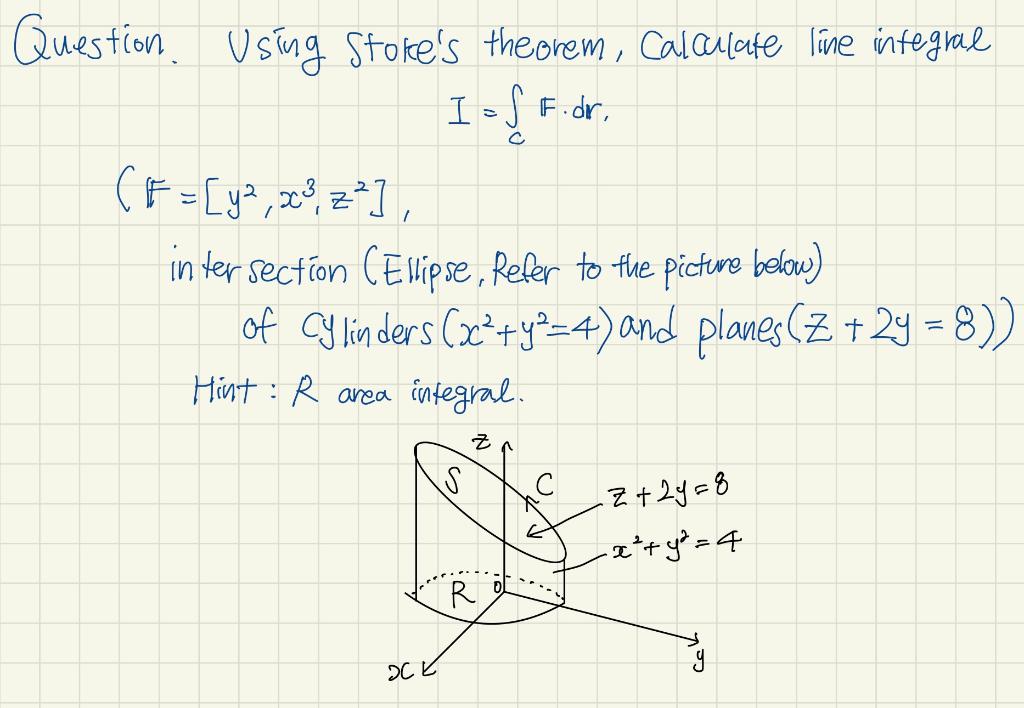 Question. Using Stoke's theorem, Calculate line integral
I = ∫_C 𝔽·dr,
(𝔽 = [y², x³, z²],
intersection (Ellipse, Refer to the picture below)
of Cylinders (x²+y²=4) and planes (z + 2y = 8))
Hint : R area integral.
z
S
C
z + 2y = 8
x² + y² = 4
R
0
x
y